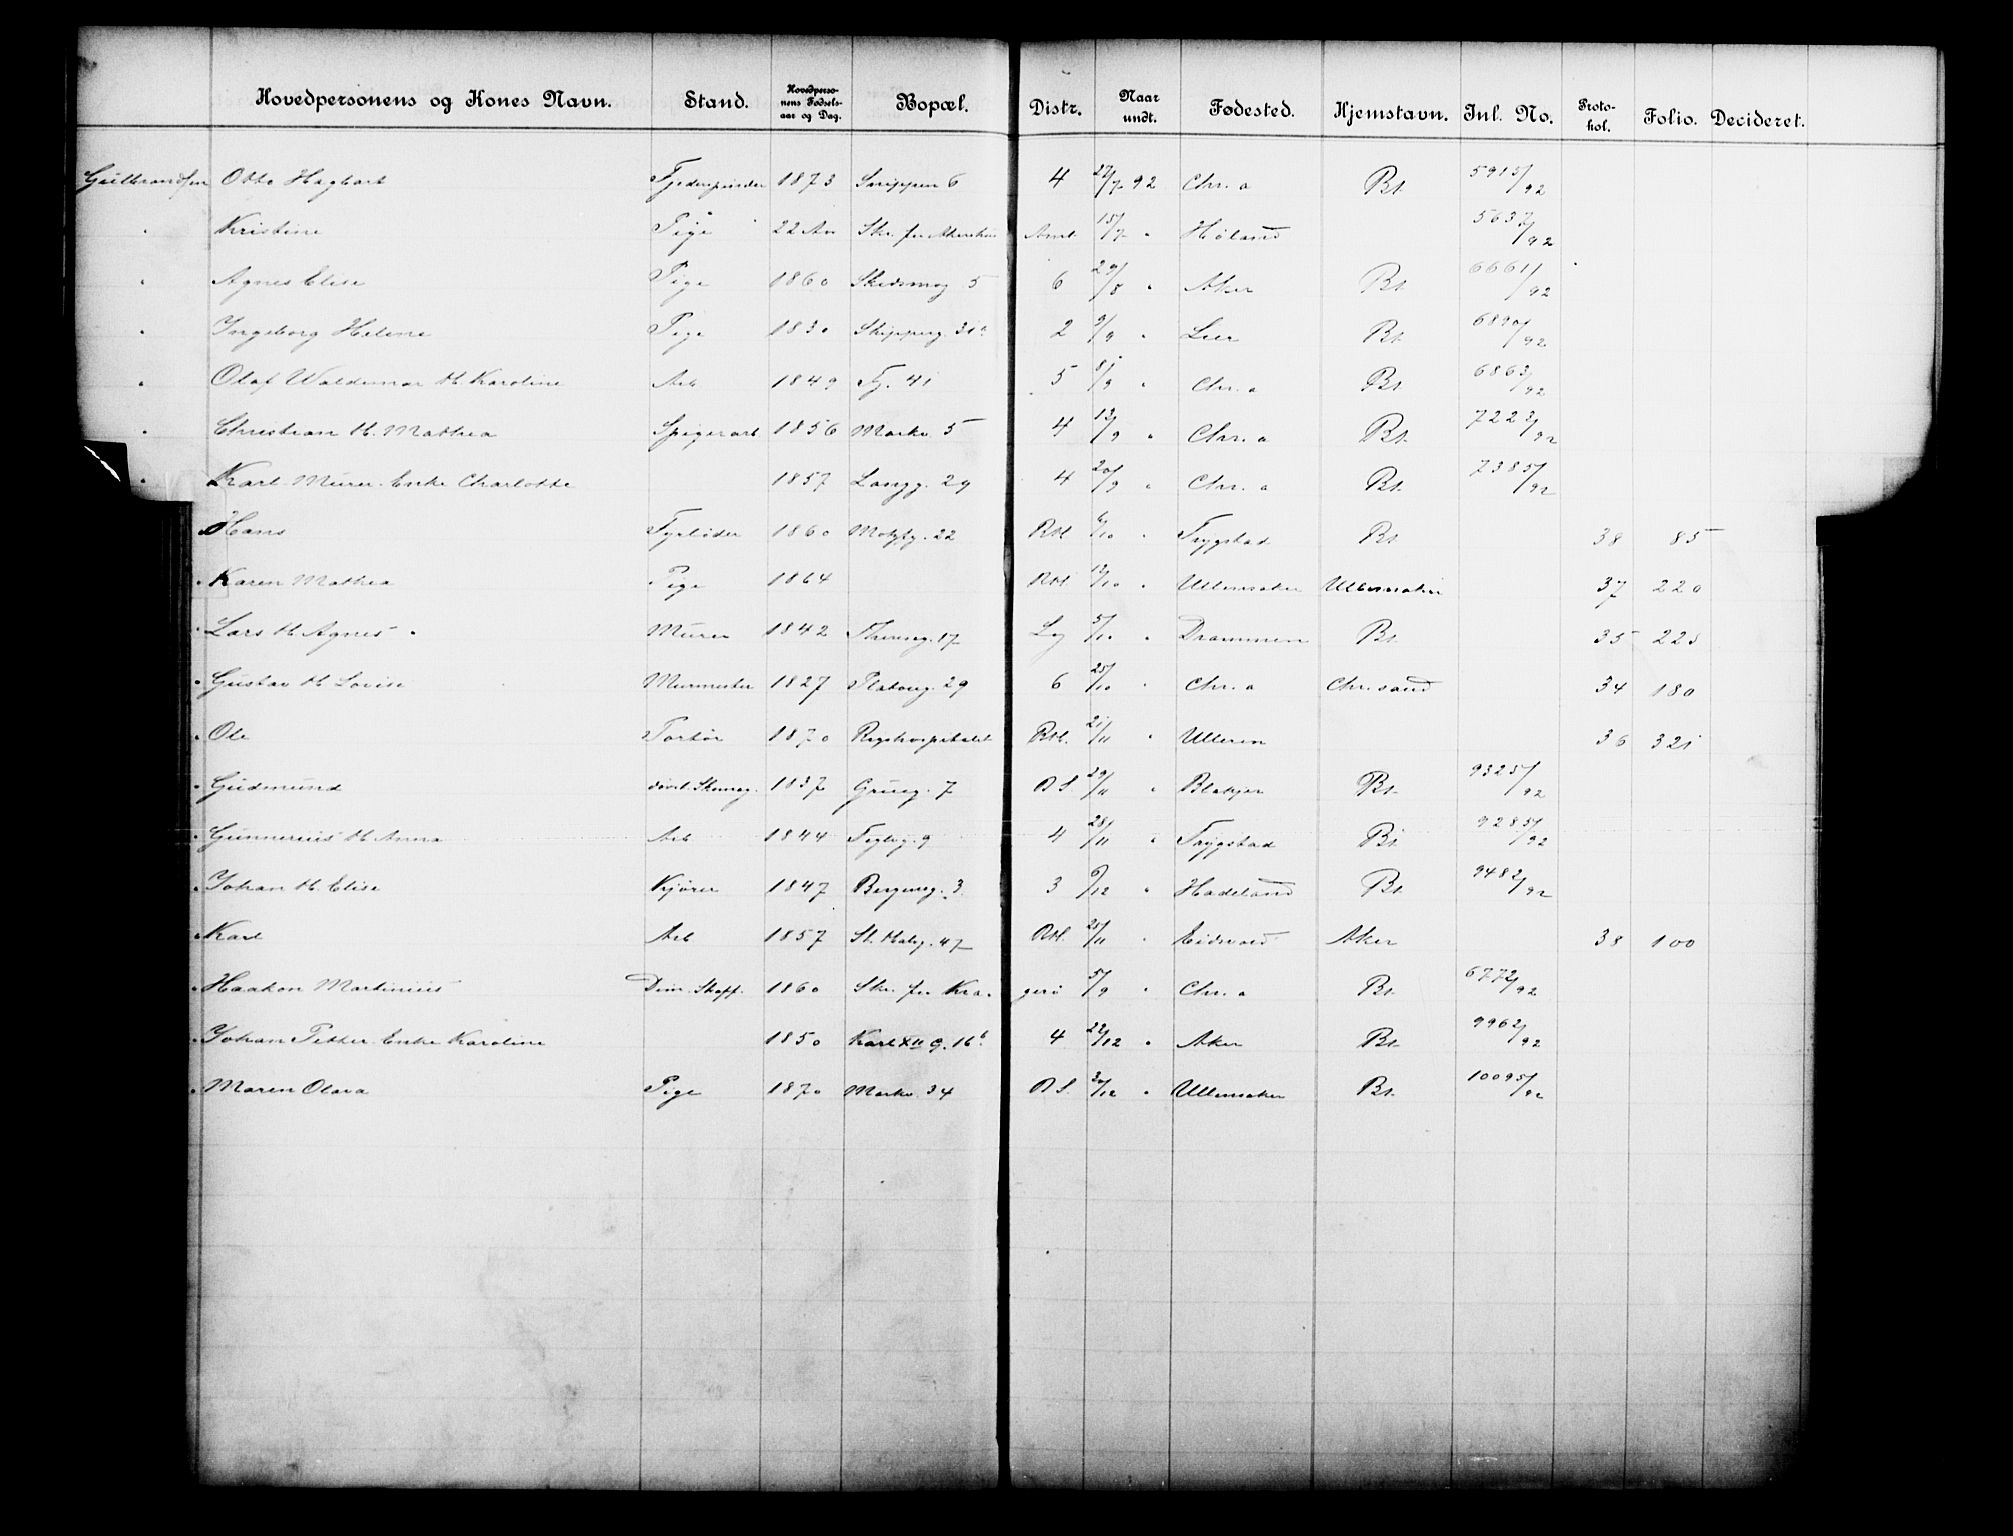 Hovedpersonens og Kones Navn. Stand. Hovedpersonens Fødselsaar og Dag. Bopæl. Distr. Naar undt. Fødested. Hjemstavn. Inl. No. Protokol. Folio. Decideret.
Gulbrandsen Otto Hagbart 1873 6 4 22/7 92 Chr.a Bt. 5915/92
" Kristine Pige 22 Aar Skr. fra Akershus Amt. 15/7 " Høland 5637/92
" Agnes Elise Pige 1860 Skedsmog 5 6 29/8 " Aker Bt. 6661/92
" Ingeborg Helene Pige 1830 Skipperg. 31 2 9/9 " Lier Bt. 6890/92
" Olaf Waldemar M. Karoline Arb 1849 Tg. 41 5 8/9 " Chr.a Bt. 6863/92
" Christian M. Mathea Spigerarb 1856 Markv. 5 4 /9 " Chr.a Bt. 722 /92
" Karl Murer. Enke Charlotte 1857 Langg. 29 4 20/9 " Chr.a Bt. 7385/92
Hans Fyrbøder 1860 Motzfg. 22 RH 6/10 " Trygstad Bt 38 85
" Karen Mathea Pige 1864 RH /10 " Ullensaker Ullensaker 37 220
" Lars M. Agnes Murer 1842 17 Lg 5/10 " Drammen Bt. 35 225
" Gustav M. Lovise Murmester 1827 Platoug. 29 6 25/10 " Chr.a Chr.sand 34 180
" Ole 1870 Rigshospitalet RH. 21/11 " Ulleren 36 321
" Gudmund Skomag. 1837 Grueg. 7 BS. 29/11 " Blakjer Bt. 9325/92
" Gunnerius M. Anna Arb 1844 Teglvg. 9 4 28/11 " Trygstad Bt 9285/92
" Johan M. Elise Kjører 1847 Bergsvg. 3 3 6/12 " Hadeland Bt. 9482/92
" Karl Arb 1857 St. Halvg. 47 RH. 25/11 " Eidsvold Aker 38 100
" Haakon Martinius Dim. Skopp. 1860 Skr. fra Kragerø 5/9 " Chr.a Bt. 6772/92
" Johan Petter. Enke Karoline 1850 Karl XII g. 16b. 4 22/12 " Aker Bt. 9962/92
" Maren Olava Pige 1870 Markv. 34 BS. 30/12 " Ullensaker Bt. 10095/92